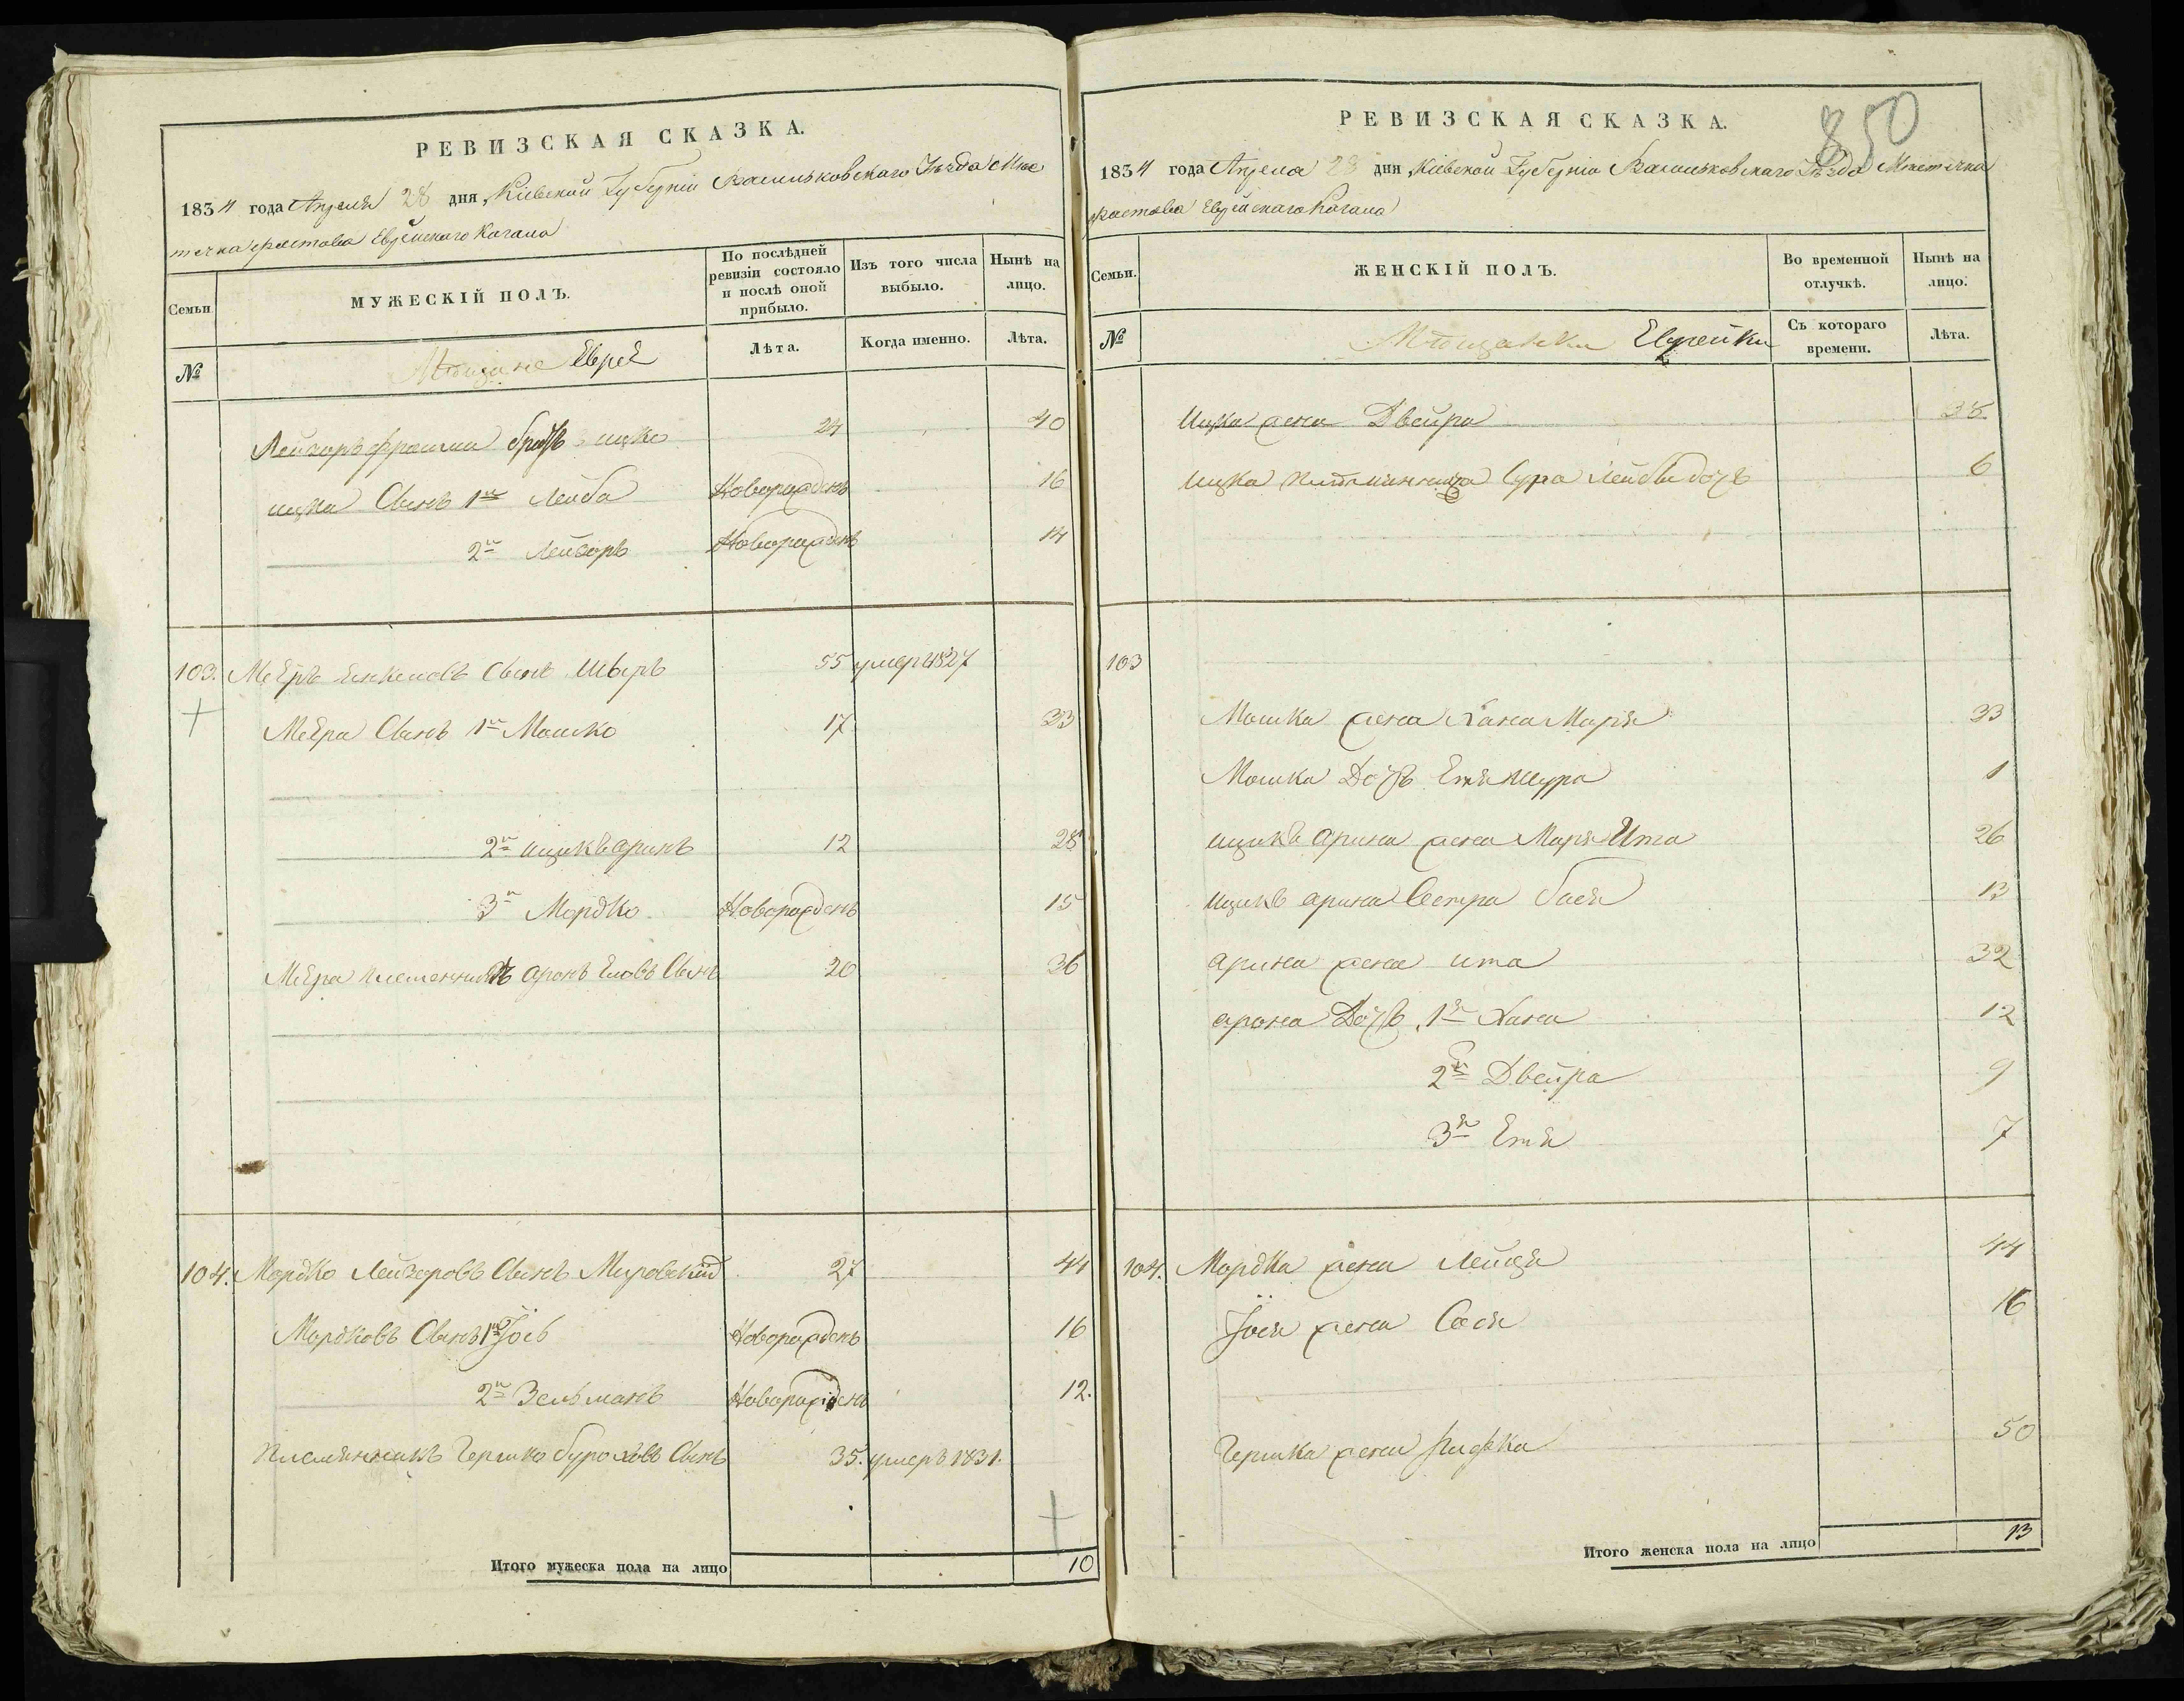 РЕВИЗСКАЯ СКАЗКА.
1834 года Апреля 28 дня Кіевской Губерніи Васильковскаго Уѣзда Мѣс
течка Фастова Еврейскаго Кагала
Семьи
МУЖЕСКІЙ ПОЛЪ.
По послѣдней ревизіи состояло и послѣ оной прибыло.
Изъ того числа выбыло.
Нынѣ на лицо.
№
Мѣщане Евреи
Лѣта.
Когда именно.
Лѣта.
Лейзоръ братъ ицко 24 40
ицка Сынъ 1й Лейба Новорожденъ 16
2й Лейзоръ Новорожденъ 14
103. Меѣръ Янкелювъ Сынъ 55 умеръ 1827
Меѣра Сынъ 1й Мошко 17 33
2й ицикъ аринъ 12 28
3й Мордко Новорожденъ 15
Меѣра племенникъ аронъ Сынъ 20 36
104. Мордко Лейзоровъ Сынъ Мировскій 27 44
Мордковъ Сынъ 1й Іось Новорожденъ 16
2й Зельманъ Новорожденъ 12.
Племянникъ Гершко Сынъ 35. умеръ 1831.
Итого мужеска пола на лицо 10
РЕВИЗСКАЯ СКАЗКА.
850
1834 года Апреля 28 дня Кіевской Губерніи Васильковскаго Уѣзда Мѣстечка
Фастова Еврейскаго Кагала
Семьи.
ЖЕНСКІЙ ПОЛЪ.
Во временной отлучкѣ.
Нынѣ на лицо.
№
Мѣщанки Еврейки
Съ котораго времени.
Лѣта.
Ицка жена Двейра 38
ицка Сура Лейбы дочь 6
103
Мошка жена Хана Маря 33
Мошка Дочь 1
ицикъ арина жена Маря Ита 26
ицикъ арина Сестра бася 13
арина жена ита 32
арона Дочь 1я Хана 12
2я Двейра 9
3я Етя 7
104. Мордка жена 44
Іося жена Сося 16
Гершка жена Рифка 50
Итого женска пола на лицо 13